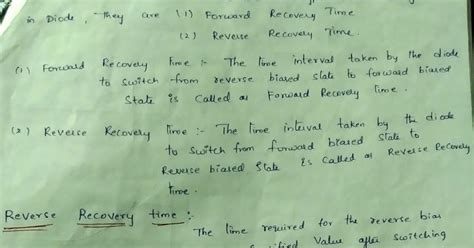 in Diode, They are (1) Forward Recovery Time
(2) Reverse Recovery Time.
(1) Forward Recovery time :- The time interval taken by the diode
to switch from reverse biased state to forward biased
State is called as Forward Recovery time.
(2) Reverse Recovery time :- The time interval taken by the diode
to switch from forward biased state to
Reverse biased state is called as Reverse Recovery
time.
Reverse Recovery time :-
The time required for the reverse bias
value after switching